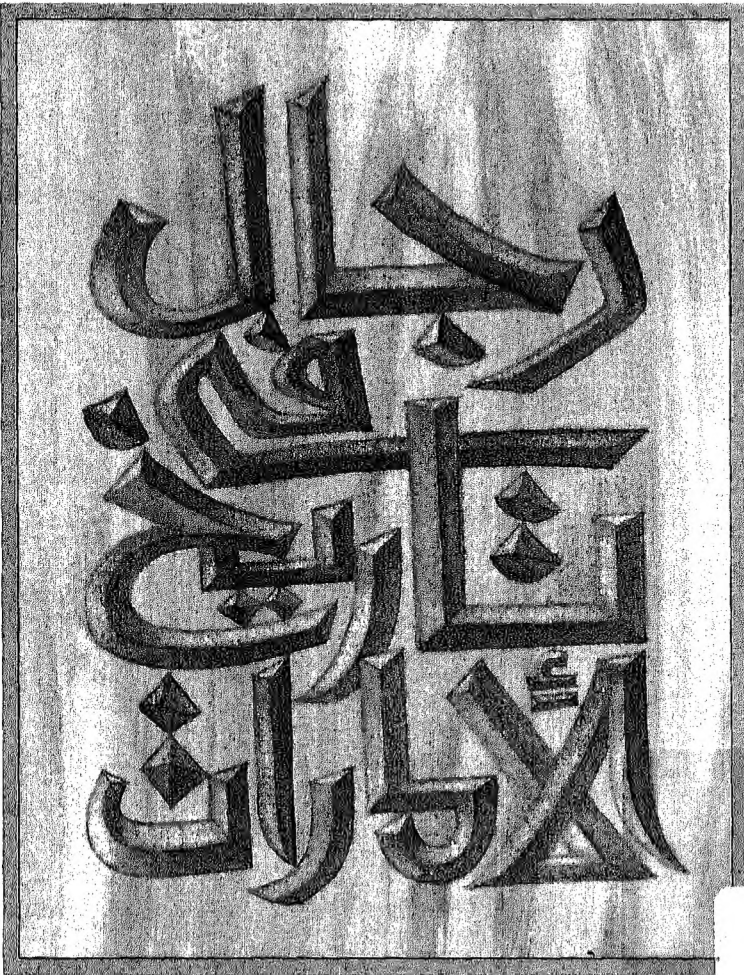 رجال
في
تاريخ
الإمارات